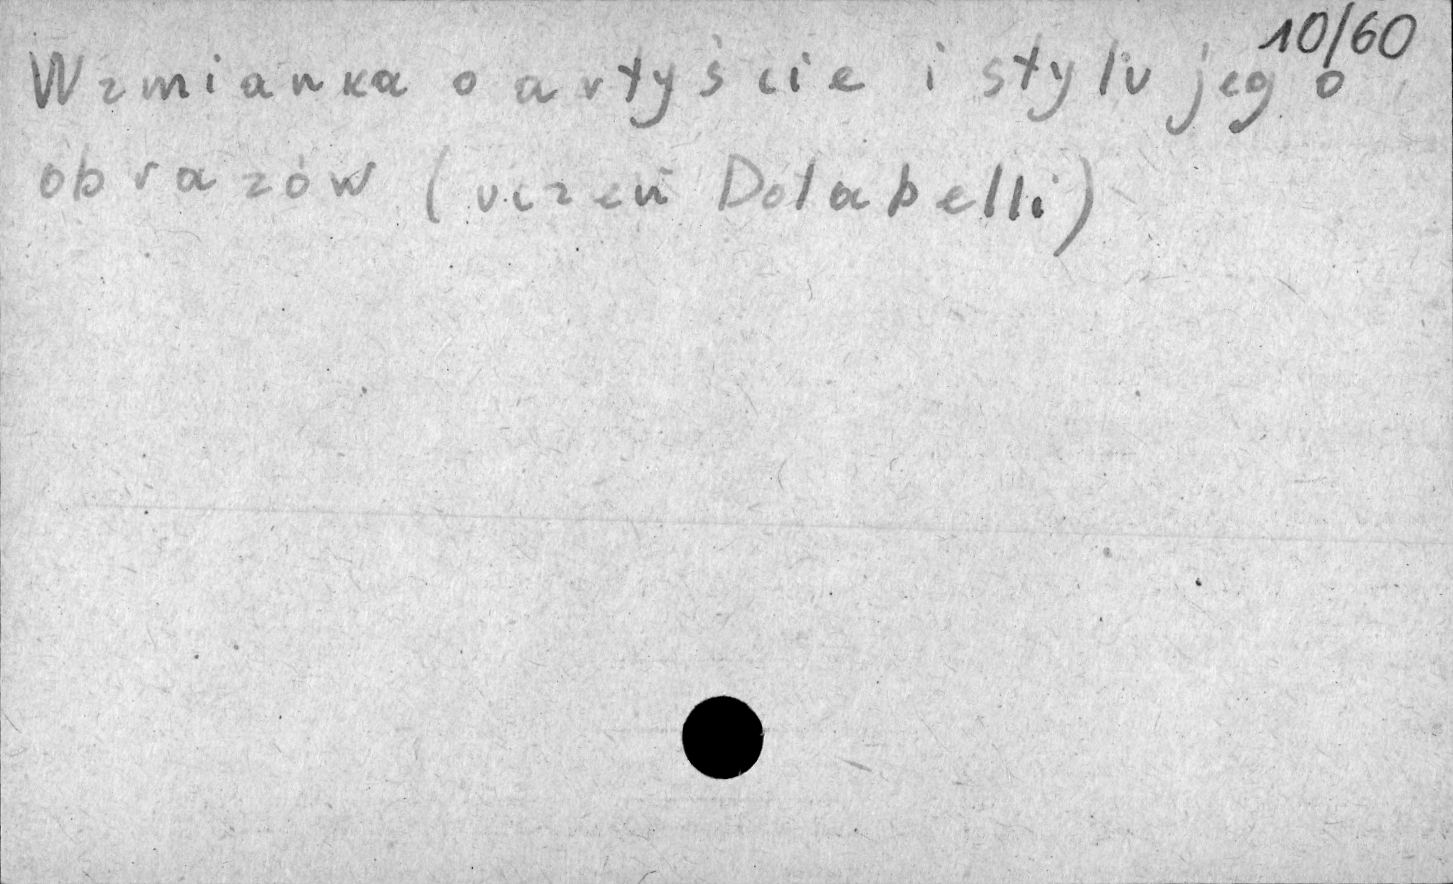 10/60
Wzmianka o artyście i stylu jego
obrazów (uczeń Dolabelli)